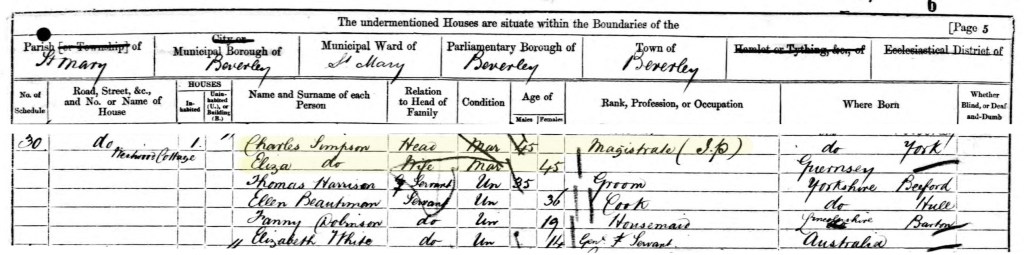 6
The undermentioned Houses are situate within the Boundaries of the [Page 5
Parish [or Township] of City or Municipal Borough of Municipal Ward of Parliamentary Borough of Town of Hamlet or Tything, &c., of Ecclesiastical District of
St Mary Beverley St Mary Beverley Beverley
No. of Schedule Road, Street, &c., and No. or Name of House HOUSES Inhabited Uninhabited (U.), or Building (B.) Name and Surname of each Person Relation to Head of Family Condition Age of Males Females Rank, Profession, or Occupation Where Born Whether Blind, or Deaf-and-Dumb
30 do 1 Charles Simpson Head Mar 45 Magistrate (J.P) do York
Westwood Cottage Eliza do Wife Mar 45 Guernsey
Thomas Harrison Servant Un 35 Groom Yorkshire Beeford
Ellen Beautiman Servant Un 36 Cook do Hull
Fanny Robinson do Un 19 Housemaid Lincolnshire Barton
Elizabeth White do Un 14 Genl Servant Australia